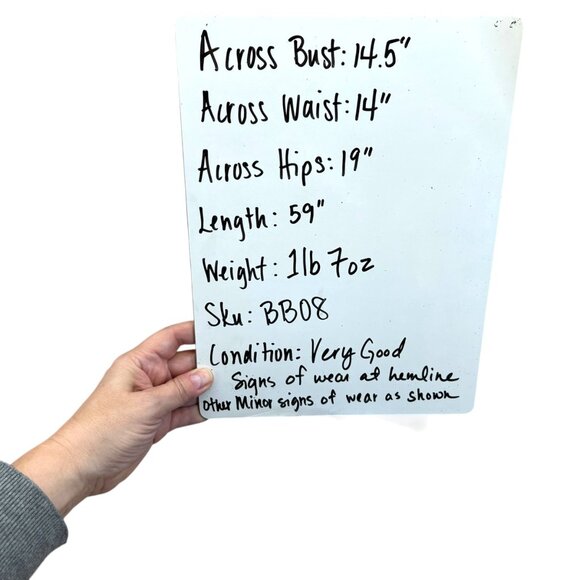 Across Bust: 14.5"
Across Waist: 14"
Across Hips: 19"
Length: 59"
Weight: 1lb 7oz
Sku: BB08
Condition: Very Good
Signs of wear at hemline
other Minor signs of wear as shown